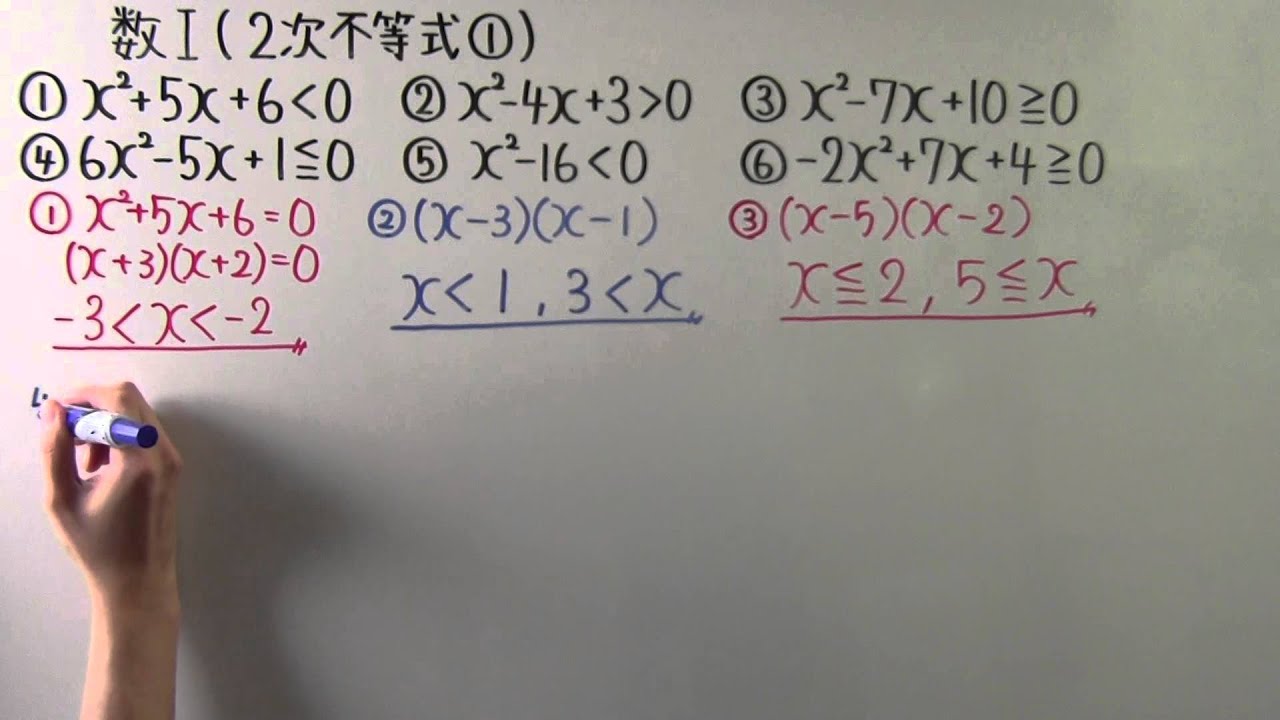 数I(2次不等式①)
① x²+5x+6<0 ② x²-4x+3>0 ③ x²-7x+10≧0
④ 6x²-5x+1≦0 ⑤ x²-16<0 ⑥ -2x²+7x+4≧0
① x²+5x+6=0
(x+3)(x+2)=0
-3<x<-2
② (x-3)(x-1)
x<1, 3<x
③ (x-5)(x-2)
x≦2, 5≦x